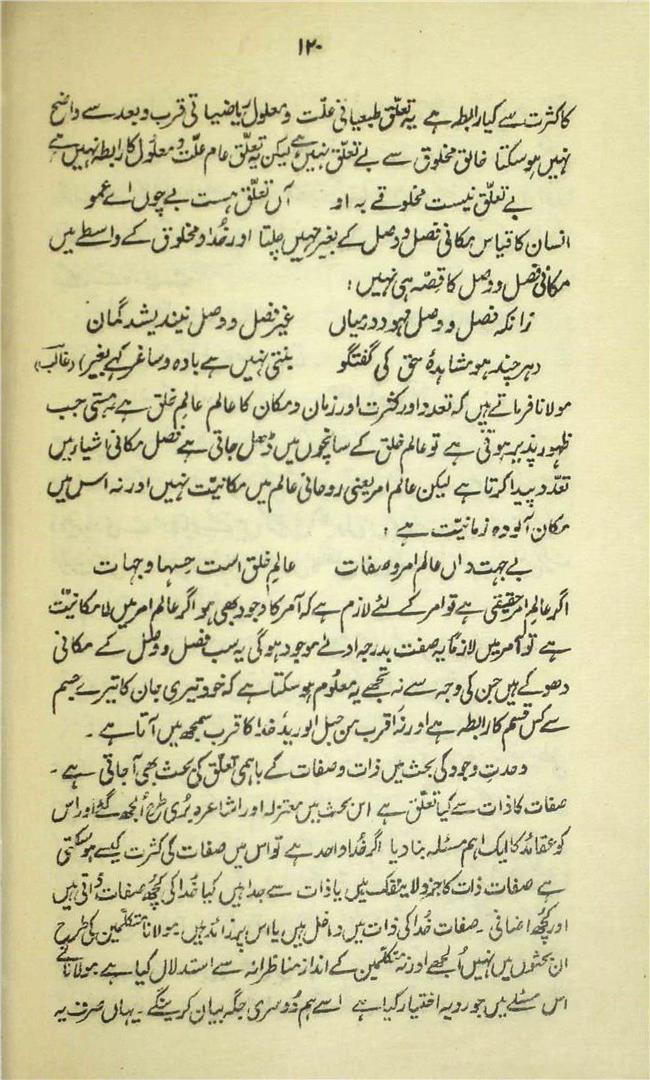 ۱۲۰
کا کثرت سے کیا رابطہ ہے یہ تعلّق طبعیاتی علّت و معلول ریاضیاتی قرب و بعد سے واضح
نہیں ہو سکتا خالق مخلوق سے بے تعلق نہیں ہے لیکن یہ تعلّق عام علّت و معلول کا رابطہ نہیں ہے
بے تعلّق نیست مخلوقے بہ او آں تعلّق ہست بے چوں اے عمو
انسان کا قیاس مکانی فصل و وصل کے بغیر نہیں چلتا اور خُدا و مخلوق کے واسطے میں
مکانی فصل و وصل کا قِصّہ ہی نہیں :
زانکہ فصل و وصل نبود در میاں غیر فصل و وصل نیندیشد گماں
(ہر چند ہو مشاہدۂ حق کی گفتگو بنتی نہیں ہے بادہ و ساغر کہے بغیر) (غالب)
مولانا فرماتے ہیں کہ تعدد اور کثرت اور زمان و مکان کا عالم عالمِ خلق ہے ہستی جب
ظہور پذیر ہوتی ہے تو عالم خلق کے سانچوں میں ڈھل جاتی ہے فصل مکانی اشیار میں
تعدّد پیدا کرتا ہے لیکن عالم امر یعنی روحانی عالم میں مکانیت نہیں اور نہ اس میں
مکان آلودہ زمانیّت ہے :
بے جہت داں عالم امر و صفات عالمِ خلق است جسہا و جہات
اگر عالمِ امر حقیقی ہے تو امر کے لئے لازم ہے کہ آمر کا وجود بھی ہو اگر عالم امر میں لا مکانیّت
ہے تو آمر میں لازماً یہ صفت بدرجہ اولےٰ موجود ہوگی یہ سب فصل و وصل کے مکانی
دھوکے ہیں جن کی وجہ سے نہ تجھے یہ معلُوم ہو سکتا ہے کہ خود تیری جان کا تیرے جسم
سے کس قسم کا رابطہ ہے اور نہ اقرب من حبل الورید خدا کا قرب سمجھ میں آتا ہے ۔
وحدتِ وجود کی بحث میں ذات و صفات کے باہمی تعلّق کی بحث بھی آ جاتی ہے ۔
صفات کا ذات سے کیا تعلّق ہے اس بحث میں معتزلہ اور اشاعرہ بُری طرح اُلجھ گئے اور اس
کو عقائد کا ایک اہم مسئلہ بنا دیا اگر خُدا واحد ہے تو اس میں صفات کی کثرت کیسے ہو سکتی
ہے صفات ذات کا جزوِ لاینفک ہیں یا ذات سے جدا ہیں کیا خُدا کی کچھ صفات ذاتی ہیں
اور کچھ اضافی ۔ صفات خُدا کی ذات میں داخل ہیں یا اس پر زائد ہیں مولانا متکلّمین کی طرح
ان بحثوں میں نہیں اُلجھے اور نہ متکلمین کے انداز مناظرانہ سے استدلال کیا ہے مولانا نے
اس مسئلے میں جو رویہ اختیار کیا ہے اسے ہم دُوسری جگہ بیان کریں گے ۔ یہاں صرف یہ